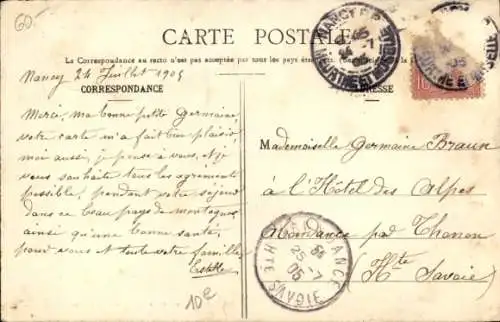 60.
CARTE POSTALE
La Correspondance au recto n'est pas acceptée par tous les pays
Nancy 24 Juillet 1905
CORRESPONDANCE
Merci, ma bonne petite Germaine,
votre carte m'a fait bien plaisir,
moi aussi, je pense à vous, et je
vous souhaite tous les agréments
possible, pendant votre séjour
dans ce beau pays de montagnes,
ainsi qu'une bonne santé,
pour vous et toute votre famille
Estelle
10e
NANCY
MEURTHE ET MOSELLE
10
RESSE
Mademoiselle Germaine Braun
à l'Hôtel des Alpes
Abondance par Thonon
(Hte Savoie)
ABONDANCE
25 -7
05
HTE SAVOIE